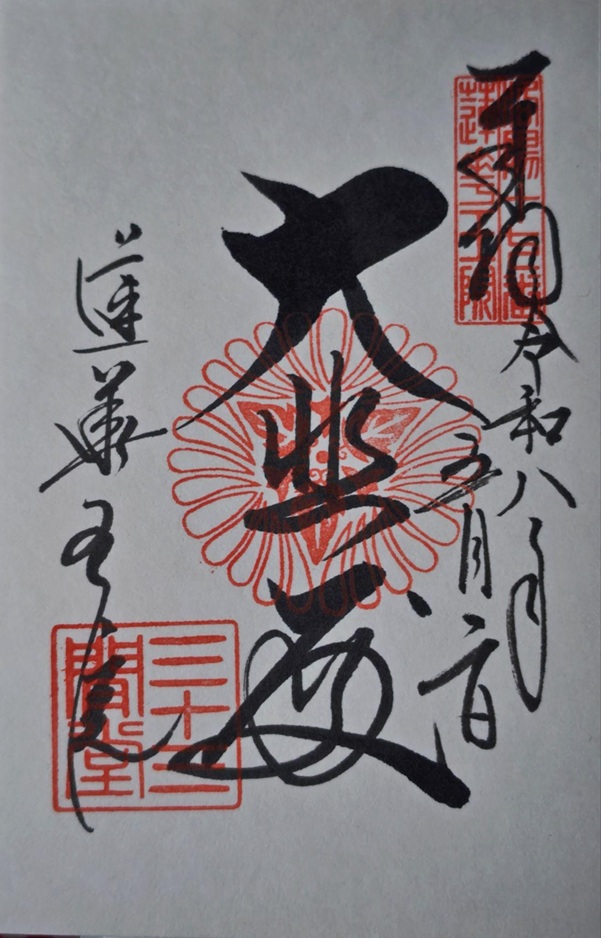 奉拝
令和八年
五月二日
大悲殿
蓮華王院
三十三
間堂